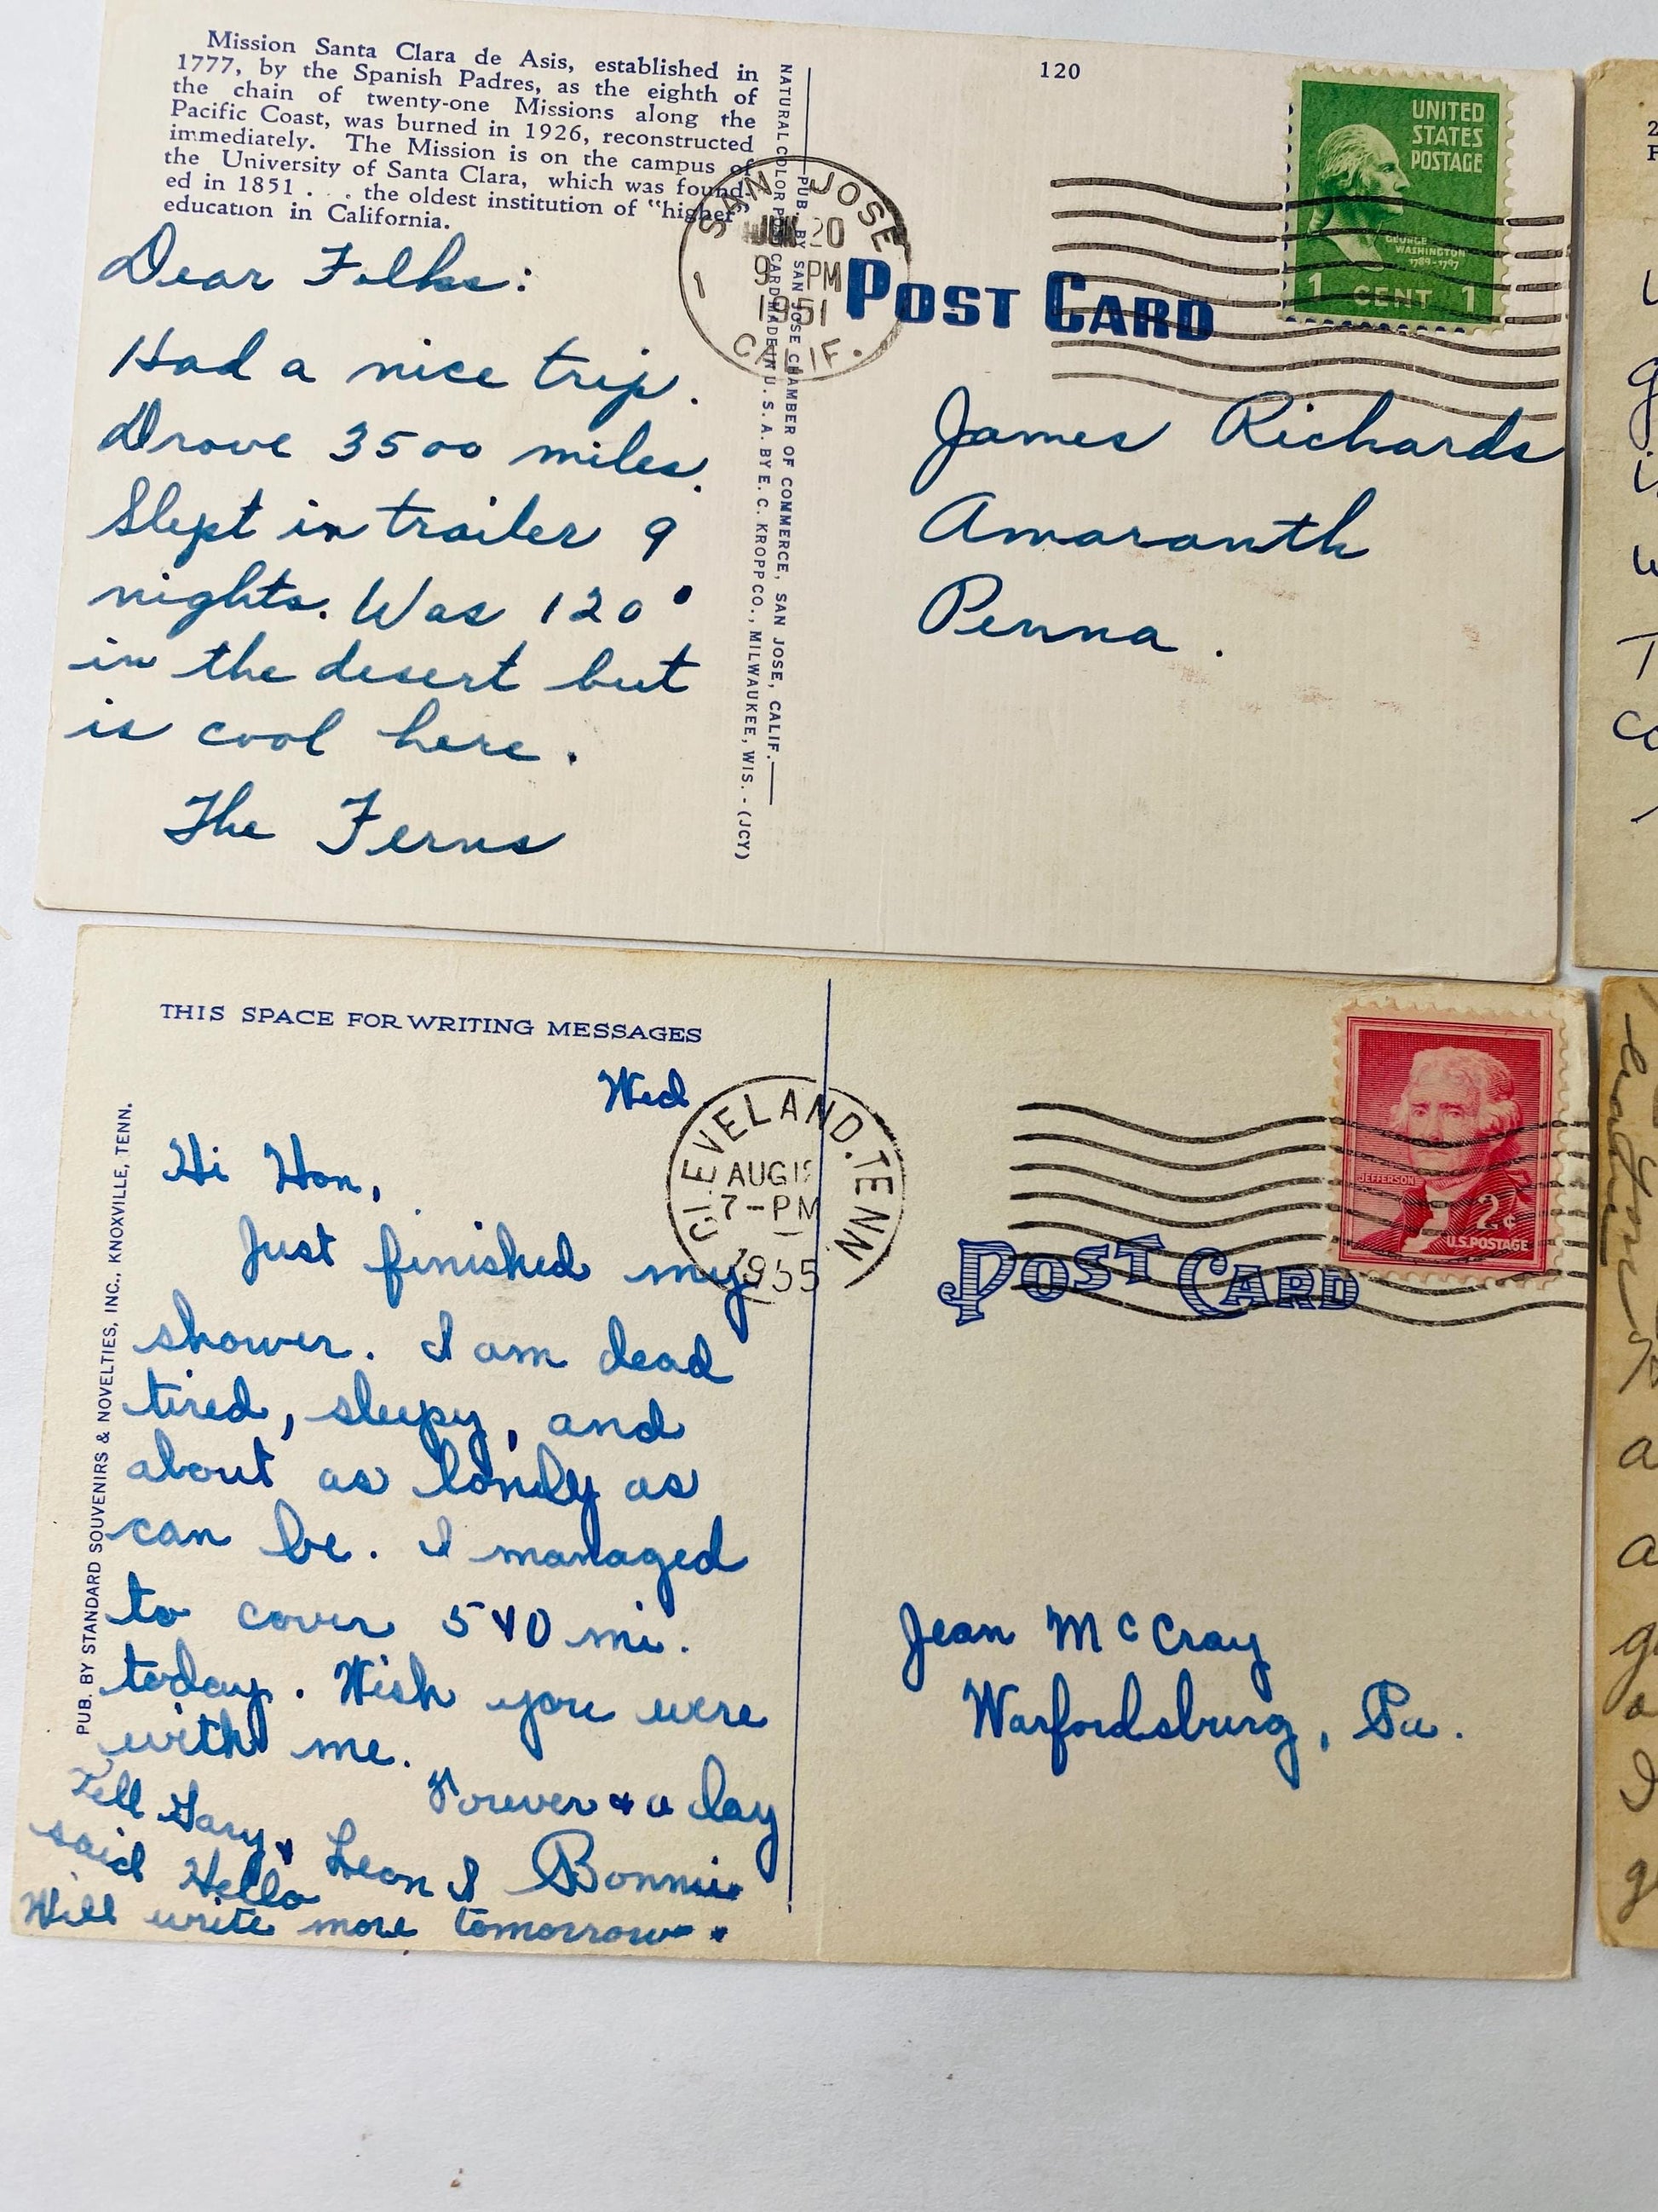 Mission Santa Clara de Asis, established in
1777, by the Spanish Padres, as the eighth of
the chain of twenty-one Missions along the
Pacific Coast, was burned in 1926, reconstructed
immediately. The Mission is on the campus of
the University of Santa Clara, which was found-
ed in 1851 . . . the oldest institution of "higher"
education in California.
Dear Folks:
Had a nice trip.
Drove 3500 miles.
Slept in trailer 9
nights. Was 120°
in the desert but
is cool here.
The Ferns
PUB. BY SAN JOSE CHAMBER OF COMMERCE, SAN JOSE, CALIF.
NATURAL COLOR POST CARD MADE IN U. S. A. BY E. C. KROPP CO., MILWAUKEE, WIS. - (JCY)
120
SAN JOSE
20
9 PM
1951
CALIF.
1
POST CARD
UNITED
STATES
POSTAGE
GEORGE
WASHINGTON
1789-1797
1 CENT 1
James Richards
Amaranth
Penna.
THIS SPACE FOR WRITING MESSAGES
Wed
Hi Hon,
Just finished my
shower. I am dead
tired, sleepy, and
about as lonely as
can be. I managed
to cover 540 mi.
today. Wish you were
with me.
Forever & a day
Bonnie
Tell Gary & Leon I
said Hello
Will write more tomorrow.
PUB. BY STANDARD SOUVENIRS & NOVELTIES, INC., KNOXVILLE, TENN.
CLEVELAND. TENN
AUG
7-PM
1955
POST CARD
JEFFERSON
2¢
U.S. POSTAGE
Jean McCray
Warfordsburg, Pa.